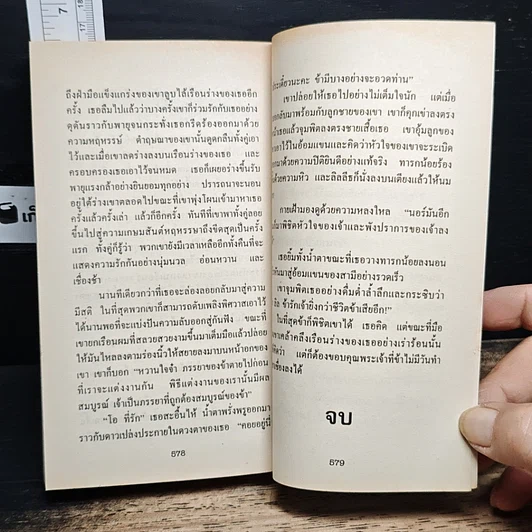 ถึงฝ่ามือแข็งแกร่งของเขาลูบไล้เรือนร่างของเธออีก
ครั้ง เธอลืมไปแล้วว่าบางครั้งเขาก็ร่วมรักกับเธออย่าง
ดุดันราวกับพายุจนกระทั่งเธอกรีดร้องออกมาด้วย
ความมหฤหรรษ์ ดำฤษณาของเขานั้นดูดกลืนทั้งคู่เอา
ไว้และเมื่อเขาลดร่างลงบนเรือนร่างของเธอ และ
ครอบครองเธอเอาไว้จนหมด เธอก็เผยร่างขึ้นรับ
พายุแรงกล้าอย่างยินยอมทุกอย่าง ปรารถนาจะนอน
อยู่ใต้ร่างเขาตลอดไปขณะที่เขาพุ่งโผนเข้ามาหาเธอ
ครั้งแล้วครั้งเล่า แล้วก็อีกครั้ง ทันทีที่เขาพาทั้งคู่ลอย
ขึ้นไปสู่ความเกษมสันต์หฤหรรษาถึงขีดสุดเป็นครั้ง
แรก ทั้งคู่ก็รู้ว่า พวกเขายังมีเวลาเหลืออีกทั้งคืนที่จะ
แสดงความรักกันอย่างนุ่มนวล อ่อนหวาน และ
เชื่องช้า
นานทีเดียวกว่าที่เธอจะล่องลอยกลับมาสู่ความ
มีสติ ในที่สุดพวกเขาก็สามารถดับเพลิงพิศวาสเอาไว้
ได้นานพอที่จะแบ่งปันความลับออกสู่กันฟัง ขณะที่
เขายกเรือนผมที่สลวยสวยงามขึ้นมาเต็มมือแล้วปล่อย
ให้มันไหลลงตามร่องนิ้วให้สยายลงมาบนหน้าอกของ
เขา เขาก็บอก “หวานใจจ๋า ภรรยาของข้าตายไปก่อน
ที่เราจะแต่งงานกัน พิธีแต่งงานของเรานั้นมีผล
สมบูรณ์ เจ้าเป็นภรรยาที่ถูกต้องสมบูรณ์ของข้า”
“โอ ที่รัก” เธอสะอื้นไห้ น้ำตาพรั่งพรูออกมา
ราวกับดาวเปล่งประกายในดวงตาของเธอ “คอยอยู่นี่
578
ประเดี๋ยวนะคะ ข้ามีบางอย่างจะอวดท่าน”
เขาปล่อยให้เธอไปอย่างไม่เต็มใจนัก แต่เมื่อ
กลับมาพร้อมกับลูกชายของเขา เขาก็คุกเข่าลงตรง
เธอแล้วจุมพิตลงตรงชายเสื้อเธอ เขาอุ้มลูกของ
ไว้ในอ้อมแขนและคิดว่าหัวใจของเขาจะระเบิด
มาด้วยความปิติยินดีอย่างแท้จริง ทารกน้อยร้อง
ด้วยความหิว และลิลลี่ธก็นั่งลงบนเตียงแล้วให้นม
กายเฝ้ามองดูด้วยความหลงใหล “นอร์มันอีก
พิชิตหัวใจของเจ้าและพังปราการของเจ้าลง
เธอยิ้มทั้งน้ำตาขณะที่เธอวางทารกน้อยลงนอน
มาสู่อ้อมแขนของสามีอย่างรวดเร็ว
เขาจุมพิตเธออย่างดื่มด่ำล้ำลึกและกระซิบว่า
ข้ารักเจ้ายิ่งกว่าชีวิตข้าเสียอีก!”
ในที่สุดข้าก็พิชิตเขาได้ เธอคิด แต่ขณะที่มือ
เคล้าคลึงเรือนร่างของเธออย่างเร่าร้อนนั้น
คิดว่า แต่ก็ต้องขอบคุณพระเจ้าที่ข้าไม่มีวันทำ
เชื่องลงได้
จบ
579